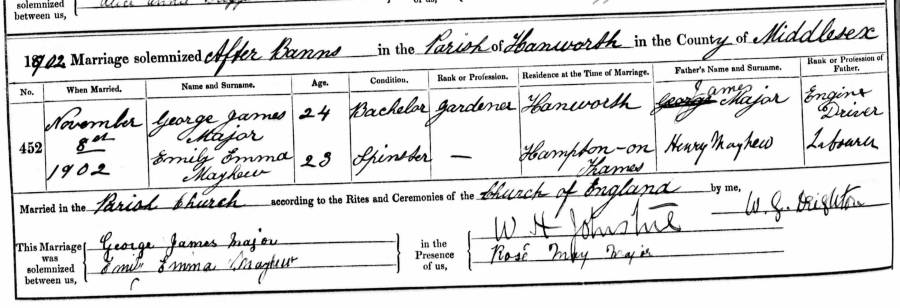 solemnized
between us,
of us,
1902 Marriage solemnized After Banns in the Parish of Hanworth in the County of Middlesex
No. When Married. Name and Surname. Age. Condition. Rank or Profession. Residence at the Time of Marriage. Father's Name and Surname. Rank or Profession of Father.
452 November 8th 1902
George James Major 24 Bachelor Gardener Hanworth George James Major Engine Driver
Emily Emma Mayhew 23 Spinster — Hampton-on Thames Henry Mayhew Labourer
Married in the Parish Church according to the Rites and Ceremonies of the Church of England by me, W. G.
This Marriage was solemnized between us, George James Major in the Presence of us, W H
Emily Emma Mayhew Rose May Major